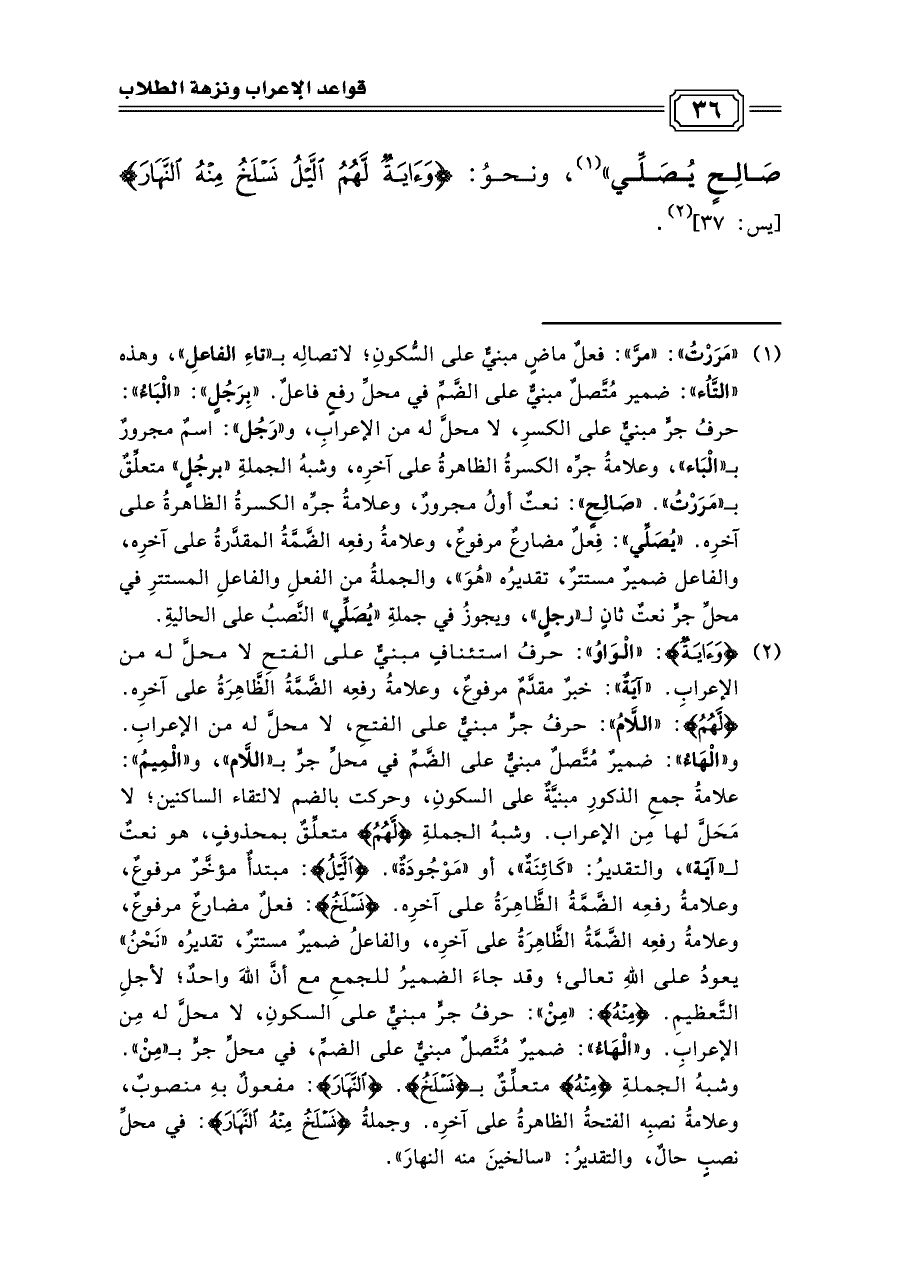 قواعد الإعراب ونزهة الطلاب
٣٦
صَالِحٍ يُصَلِّي»(١)، ونحوُ: ﴿وَءَايَةٌ لَّهُمُ ٱلَّيْلُ نَسْلَخُ مِنْهُ ٱلنَّهَارَ﴾
[يس: ٣٧](٢).
(١) «مَرَرْتُ»: «مرَّ»: فعلٌ ماضٍ مبنيٌّ على السُّكونِ؛ لاتصالِه بـ«تاءِ الفاعلِ»، وهذه
«التَّاُء»: ضمير مُتَّصلٌ مبنيٌّ على الضَّمِّ في محلِّ رفعٍ فاعلٌ. «بِرَجُلٍ»: «الْبَاءُ»:
حرفُ جرٍّ مبنيٌّ على الكسرِ، لا محلَّ له من الإعرابِ، و«رَجُل»: اسمٌ مجرورٌ
بـ«الْبَاء»، وعلامةُ جرِّه الكسرةُ الظاهرةُ على آخرِه، وشبهُ الجملةِ «برجُلٍ» متعلِّقٌ
بـ«مَرَرْتُ». «صَالِحٍ»: نعتٌ أولُ مجرورٌ، وعلامةُ جرِّه الكسرةُ الظاهرةُ على
آخرِه. «يُصَلِّي»: فِعلٌ مضارعٌ مرفوعٌ، وعلامةُ رفعِه الضَّمَّةُ المقدَّرةُ على آخرِه،
والفاعل ضميرٌ مستترٌ، تقديرُه «هُوَ»، والجملةُ من الفعلِ والفاعلِ المستترِ في
محلِّ جرٍّ نعتٌ ثانٍ لـ«رجلٍ»، ويجوزُ في جملةِ «يُصَلِّي» النَّصبُ على الحاليةِ.
(٢) ﴿وَءَايَةٌ﴾: «الْوَاوُ»: حرفُ استئنافٍ مبنيٌّ على الفتحِ لا محلَّ له من
الإعرابِ. «آيَةٌ»: خبرٌ مقدَّمٌ مرفوعٌ، وعلامةُ رفعِه الضَّمَّةُ الظَّاهِرَةُ على آخرِه.
﴿لَّهُمُ﴾: «اللَّامُ»: حرفُ جرٍّ مبنيٌّ على الفتحِ، لا محلَّ له من الإعرابِ.
و«الْهَاءُ»: ضميرٌ مُتَّصلٌ مبنيٌّ على الضَّمِّ في محلِّ جرٍّ بـ«اللَّام»، و«الْمِيمُ»:
علامةُ جمعِ الذكورِ مبنيَّةٌ على السكونِ، وحركت بالضم لالتقاء الساكنين؛ لا
مَحَلَّ لها مِن الإعراب. وشبهُ الجملةِ ﴿لَّهُمُ﴾ متعلِّقٌ بمحذوفٍ، هو نعتٌ
لـ«آيَة»، والتقديرُ: «كَائِنَةٌ»، أو «مَوْجُودَةٌ». ﴿ٱلَّيْلُ﴾: مبتدأٌ مؤخَّرٌ مرفوعٌ،
وعلامةُ رفعِه الضَّمَّةُ الظَّاهِرَةُ على آخرِه. ﴿نَسْلَخُ﴾: فعلٌ مضارعٌ مرفوعٌ،
وعلامةُ رفعِه الضَّمَّةُ الظَّاهِرَةُ على آخرِه، والفاعلُ ضميرٌ مستترٌ، تقديرُه «نَحْنُ»
يعودُ على اللهِ تعالى؛ وقد جاءَ الضميرُ للجمعِ مع أنَّ اللهَ واحدٌ؛ لأجلِ
التَّعظيمِ. ﴿مِنْهُ﴾: «مِنْ»: حرفُ جرٍّ مبنيٌّ على السكونِ، لا محلَّ له مِن
الإعرابِ. و«الْهَاءُ»: ضميرٌ مُتَّصلٌ مبنيٌّ على الضمِّ، في محلِّ جرٍّ بـ«مِنْ».
وشبهُ الجملةِ ﴿مِنْهُ﴾ متعلِّقٌ بـ﴿نَسْلَخُ﴾. ﴿ٱلنَّهَارَ﴾: مفعولٌ بهِ منصوبٌ،
وعلامةُ نصبِه الفتحةُ الظاهرةُ على آخرِه. وجملةُ ﴿نَسْلَخُ مِنْهُ ٱلنَّهَارَ﴾: في محلِّ
نصبٍ حالٌ، والتقديرُ: «سالخينَ منه النهارَ».